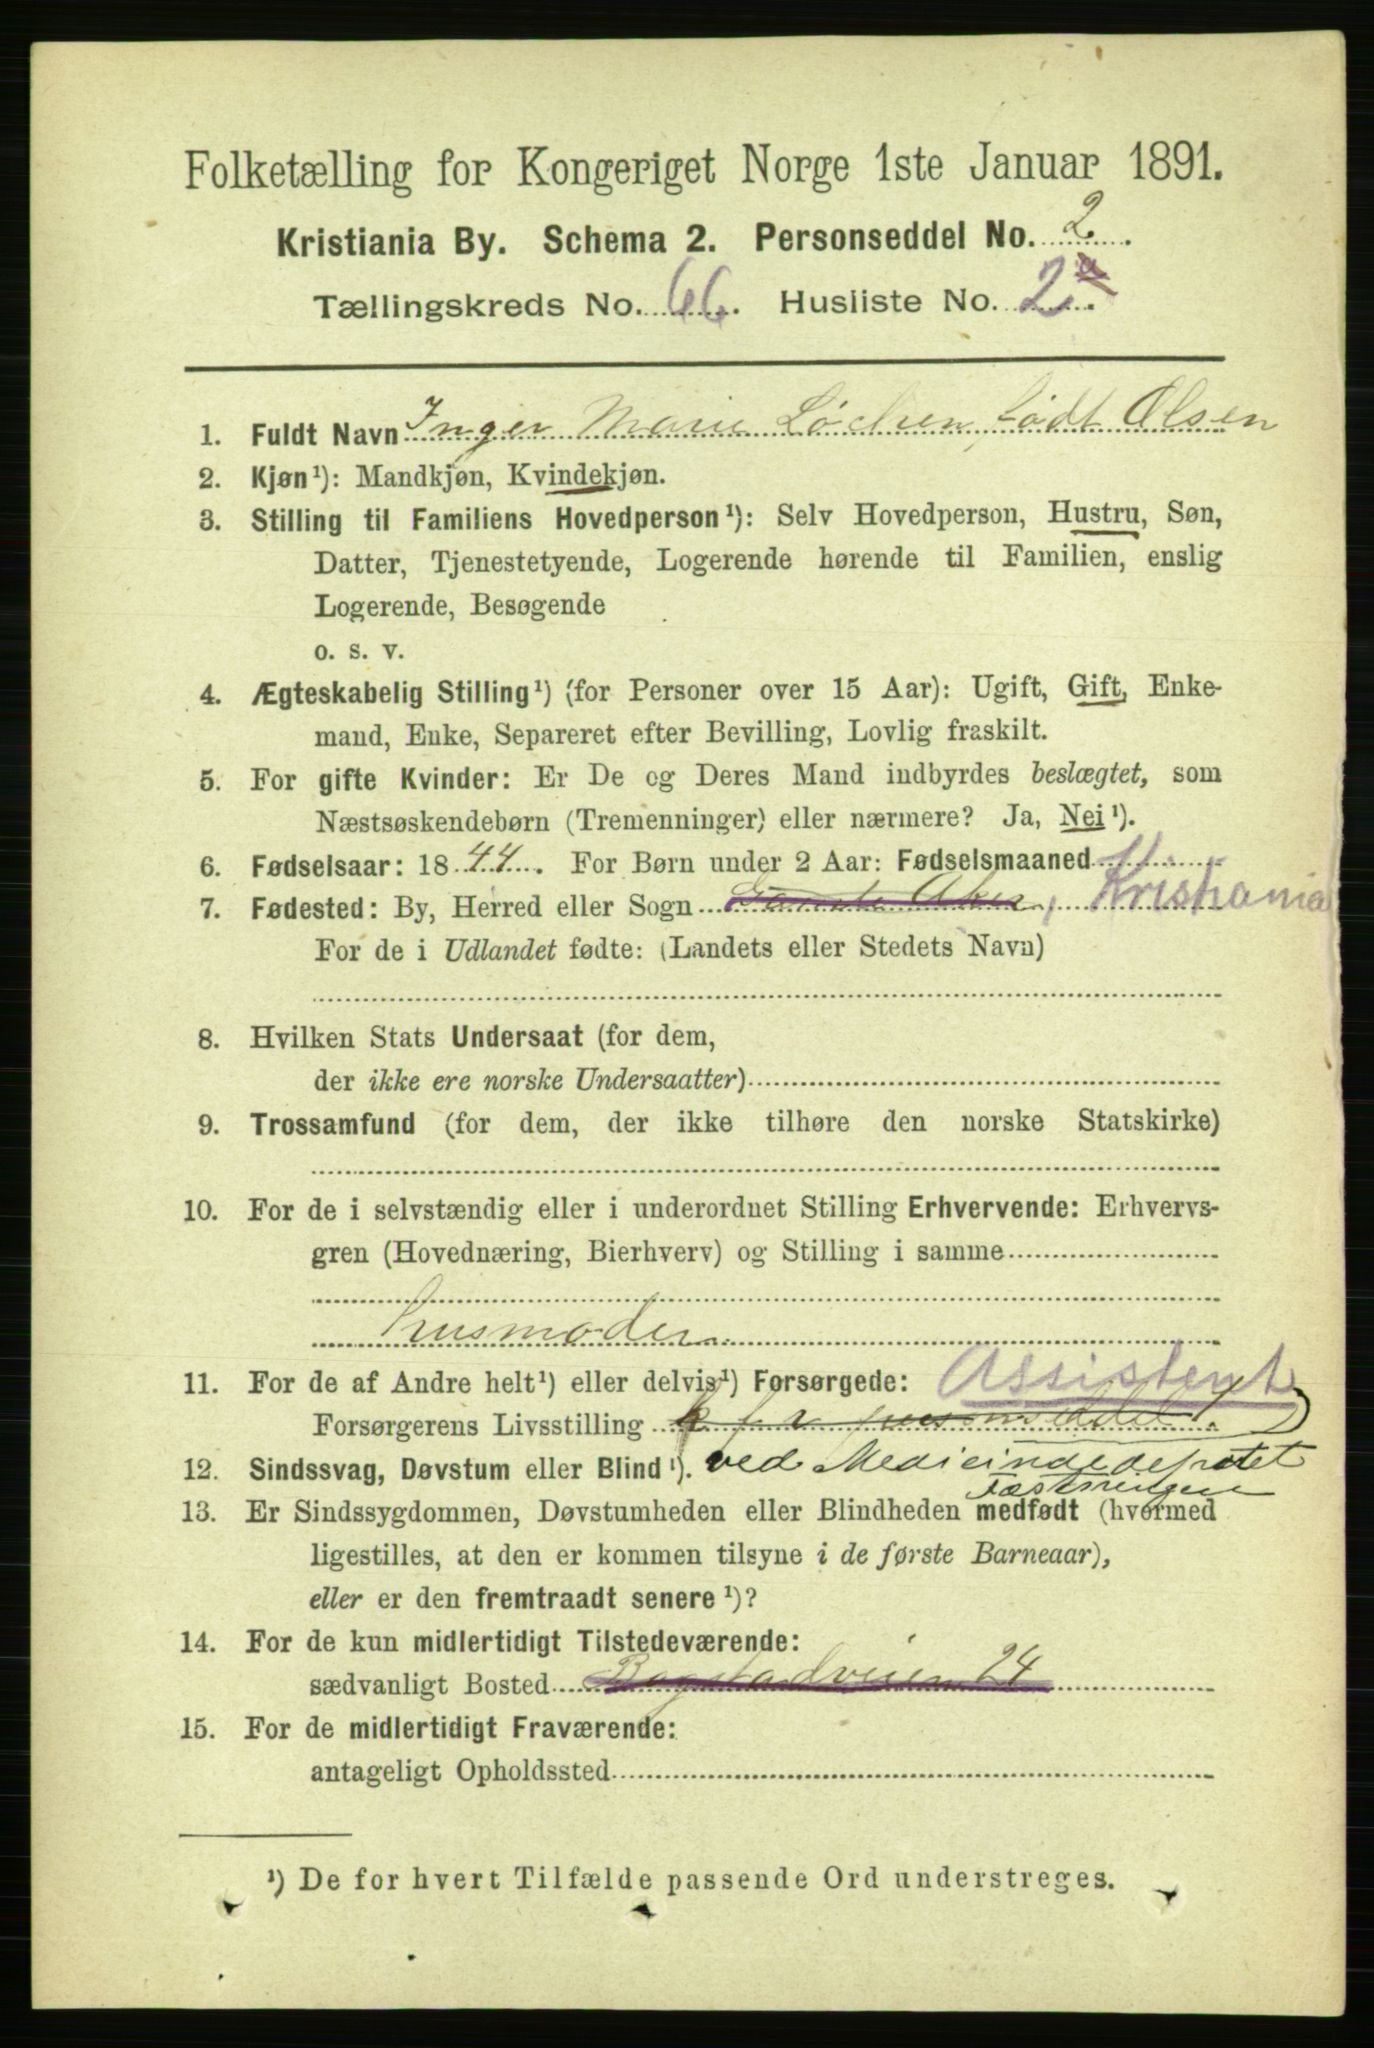 Folketælling for Kongeriget Norge 1ste Januar 1891.
Kristiania By. Schema 2. Personseddel No. 2.
Tællingskreds No. 66. Husliste No. 2a.
1. Fuldt Navn Inger Marie Løchen, født Olsen
2. Kjøn¹): Mandkjøn, Kvindekjøn.
3. Stilling til Familiens Hovedperson¹): Selv Hovedperson, Hustru, Søn,
Datter, Tjenestetyende, Logerende hørende til Familien, enslig
Logerende, Besøgende
o. s. v.
4. Ægteskabelig Stilling¹) (for Personer over 15 Aar): Ugift, Gift, Enke-
mand, Enke, Separeret efter Bevilling, Lovlig fraskilt.
5. For gifte Kvinder: Er De og Deres Mand indbyrdes beslægtet, som
Næstsøskendebørn (Tremenninger) eller nærmere? Ja, Nei¹).
6. Fødselsaar: 1844. For Børn under 2 Aar: Fødselsmaaned
7. Fødested: By, Herred eller Sogn Gamle Aker, Kristiania
For de i Udlandet fødte: (Landets eller Stedets Navn)
8. Hvilken Stats Undersaat (for dem,
der ikke ere norske Undersaatter)
9. Trossamfund (for dem, der ikke tilhøre den norske Statskirke)
10. For de i selvstændig eller i underordnet Stilling Erhvervende: Erhvervs-
gren (Hovednæring, Bierhverv) og Stilling i samme
Husmoder
11. For de af Andre helt¹) eller delvis¹) Forsørgede: Assistent
Forsørgerens Livsstilling
12. Sindssvag, Døvstum eller Blind¹). ved Medicindedepotet
Fæstningen
13. Er Sindssygdommen, Døvstumheden eller Blindheden medfødt (hvormed
ligestilles, at den er kommen tilsyne i de første Barneaar),
eller er den fremtraadt senere¹)?
14. For de kun midlertidigt Tilstedeværende:
sædvanligt Bosted Bogstadveien 24
15. For de midlertidigt Fraværende:
antageligt Opholdssted
¹) De for hvert Tilfælde passende Ord understreges.